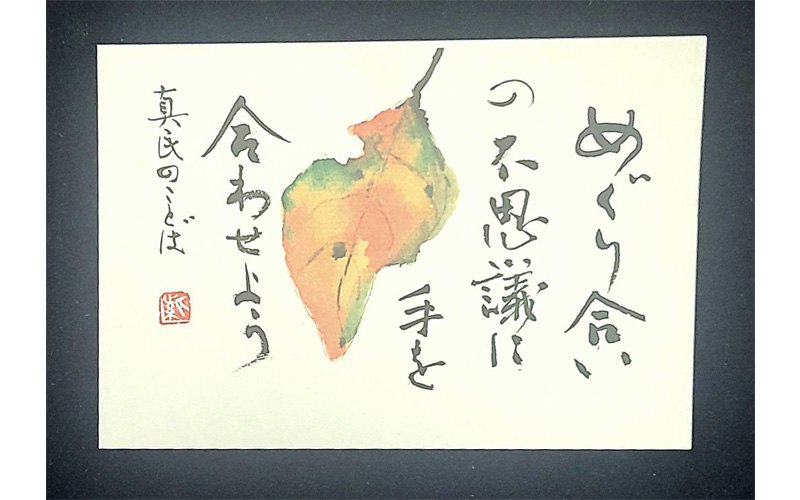 めぐり合い
の不思議に
手を
合わせよう
真民のことば